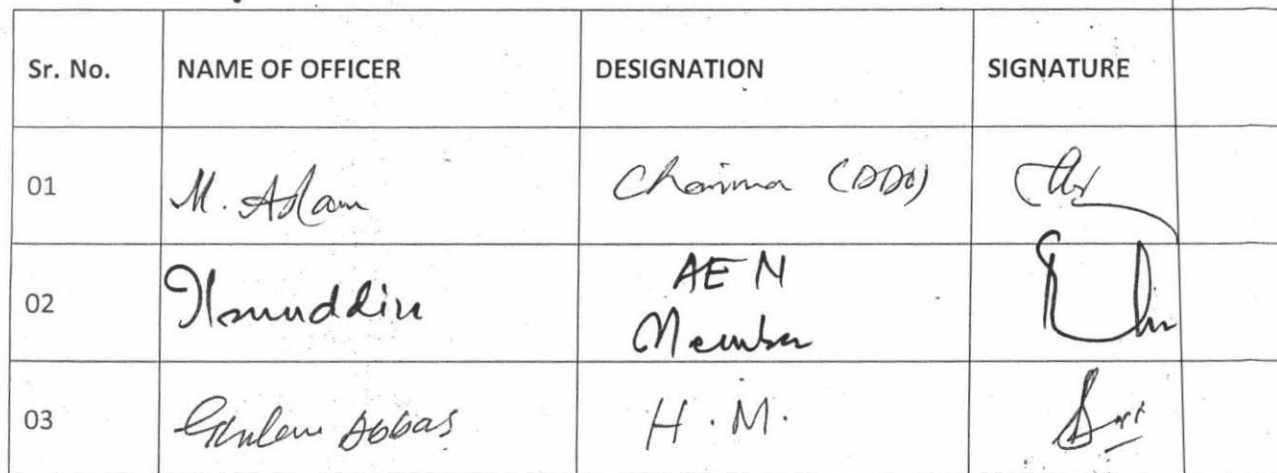 Sr. No. NAME OF OFFICER DESIGNATION SIGNATURE
01 M. Aslam Chairma (DDO)
02 AEN
Member
03 Ghulam Abbas H.M.